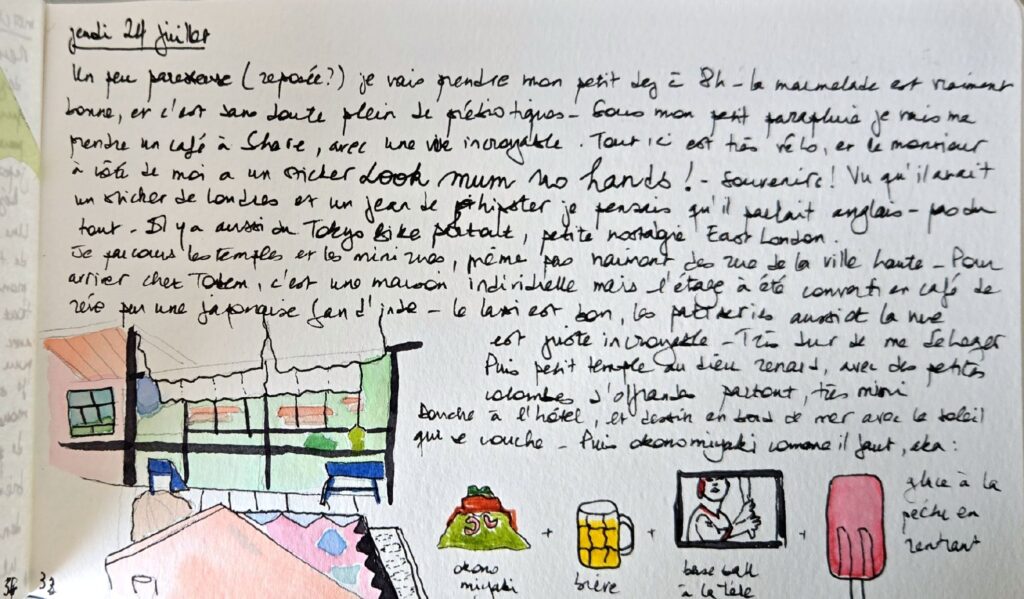 jeudi 24 juillet
Un peu paresseuse (reposée?) je vais prendre mon petit dej à 8h - la marmelade est vraiment
bonne, et c'est sans doute plein de prébiotiques - Sous mon petit parapluie je vais me
prendre un café à Share, avec une vue incroyable. Tout ici est très vélo, et le monsieur
à côté de moi a un sticker Look mum no hands! - Souvenirs! Vu qu'il avait
un sticker de Londres et un jean de hipster je pensais qu'il parlait anglais - pas du
tout - Il y a aussi du Tokyo Bike partout, petite nostalgie East London.
Je parcours les temples et les mini rues, même pas vraiment des rues de la ville haute - Pour
arriver chez Totem, c'est une maison individuelle mais l'étage a été converti en café de
rêve par une japonaise fan d'inde - le lassi est bon, les patisseries aussi et la vue
est juste incroyable - Très dur de me déloger
Puis petit temple au dieu renard, avec des petites
colombes d'offrandes partout, très mimi
Douche à l'hôtel, et dessin en bord de mer avec le soleil
qui se couche - Puis okonomiyaki comme il faut, aka:
okono
miyaki
+
bière
+
base ball
à la télé
+
glace à la
pêche en
rentrant
32